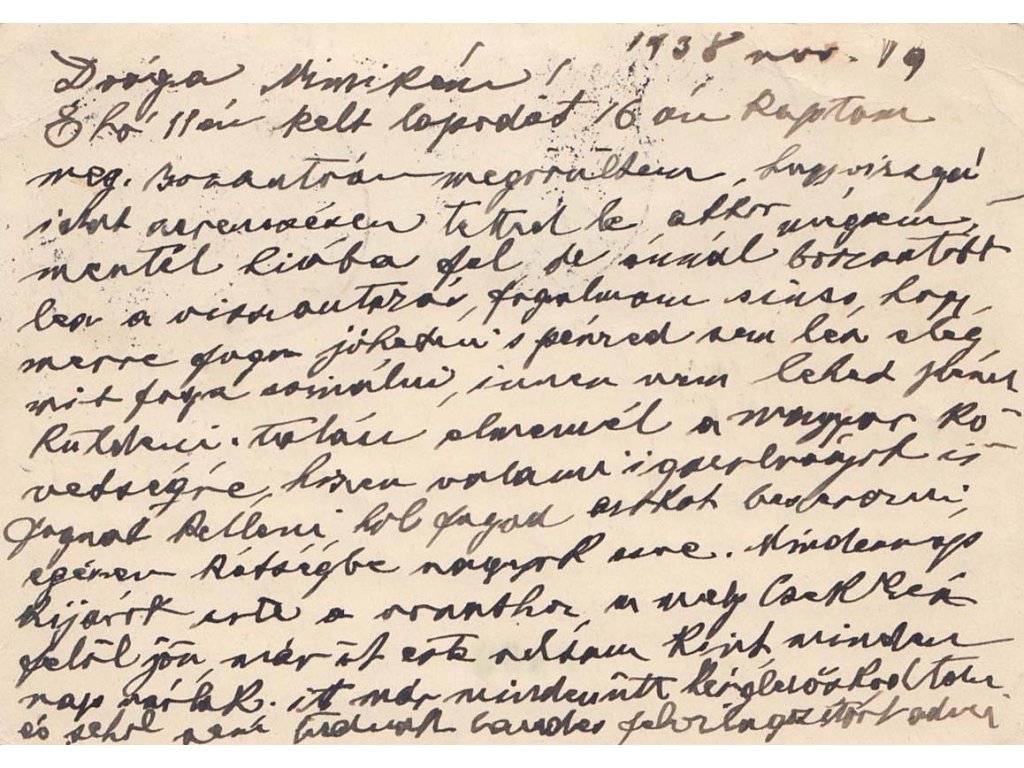 1938 nov. 19
Drága Mimikém!
E hó 11 én kelt lapodat 16 án kaptam
meg. Borzasztóan megörültem, hogy
tetted le akkor mégsem
mentél hiába fel de annál borzasztóbb
lesz a visszautazás, fogalmam sincs, hogy
merre fogsz jöhetni s pénzed sem lesz elég
mit fogsz csinálni, innen nem lehet pénzt
küldeni. talán elmennél a magyar kö-
vetségre, hiszen valami igazolványok is
fognak kelleni, hol fogod azokat beszerezni,
egészen kétségbe vagyok esve. Mindennap
kijárok este a vonathoz, a mely
felől jön, már öt este voltam kint minden
nap várlak. itt már mindenütt
és sehol nem tudnak felvilágosítást adni